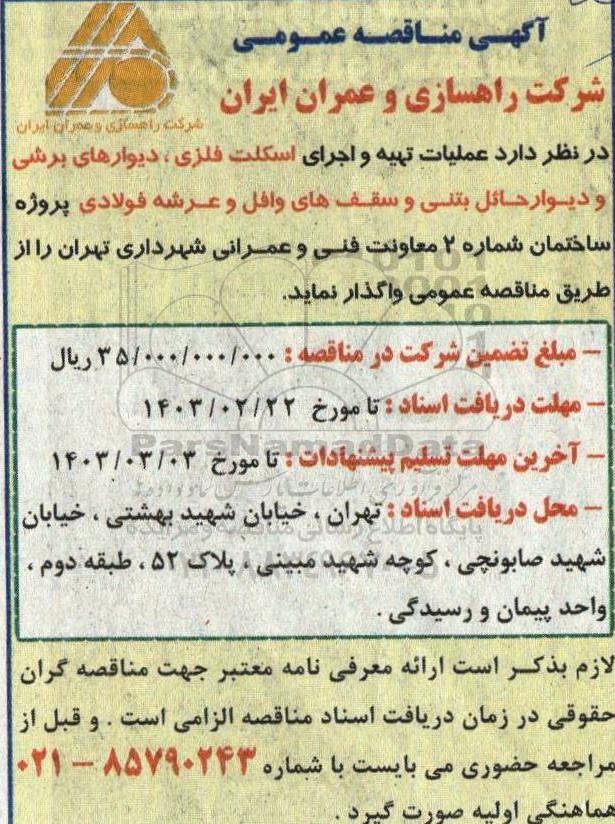 آگهی مناقصه عمومی
شرکت راهسازی و عمران ایران
شرکت راهسازی و عمران ایران
در نظر دارد عملیات تهیه و اجرای اسکلت فلزی ، دیوارهای برشی
و دیوارحائل بتنی و سقف های وافل و عرشه فولادی پروژه
ساختمان شماره ۲ معاونت فنی و عمرانی شهرداری تهران را از
طریق مناقصه عمومی واگذار نماید.
– مبلغ تضمین شرکت در مناقصه : ۳۵/۰۰۰/۰۰۰/۰۰۰ ریال
– مهلت دریافت اسناد : تا مورخ ۱۴۰۳/۰۲/۲۲
– آخرین مهلت تسلیم پیشنهادات : تا مورخ ۱۴۰۳/۰۳/۰۳
– محل دریافت اسناد : تهران ، خیابان شهید بهشتی ، خیابان
شهید صابونچی ، کوچه شهید مبینی ، پلاک ۵۲ ، طبقه دوم ،
واحد پیمان و رسیدگی .
لازم بذکر است ارائه معرفی نامه معتبر جهت مناقصه گران
حقوقی در زمان دریافت اسناد مناقصه الزامی است . و قبل از
مراجعه حضوری می بایست با شماره ۸۵۷۹۰۲۴۳ – ۰۲۱
هماهنگی اولیه صورت گیرد .
ParsNamadData
پایگاه اطلاع رسانی مناقصه و مزایده